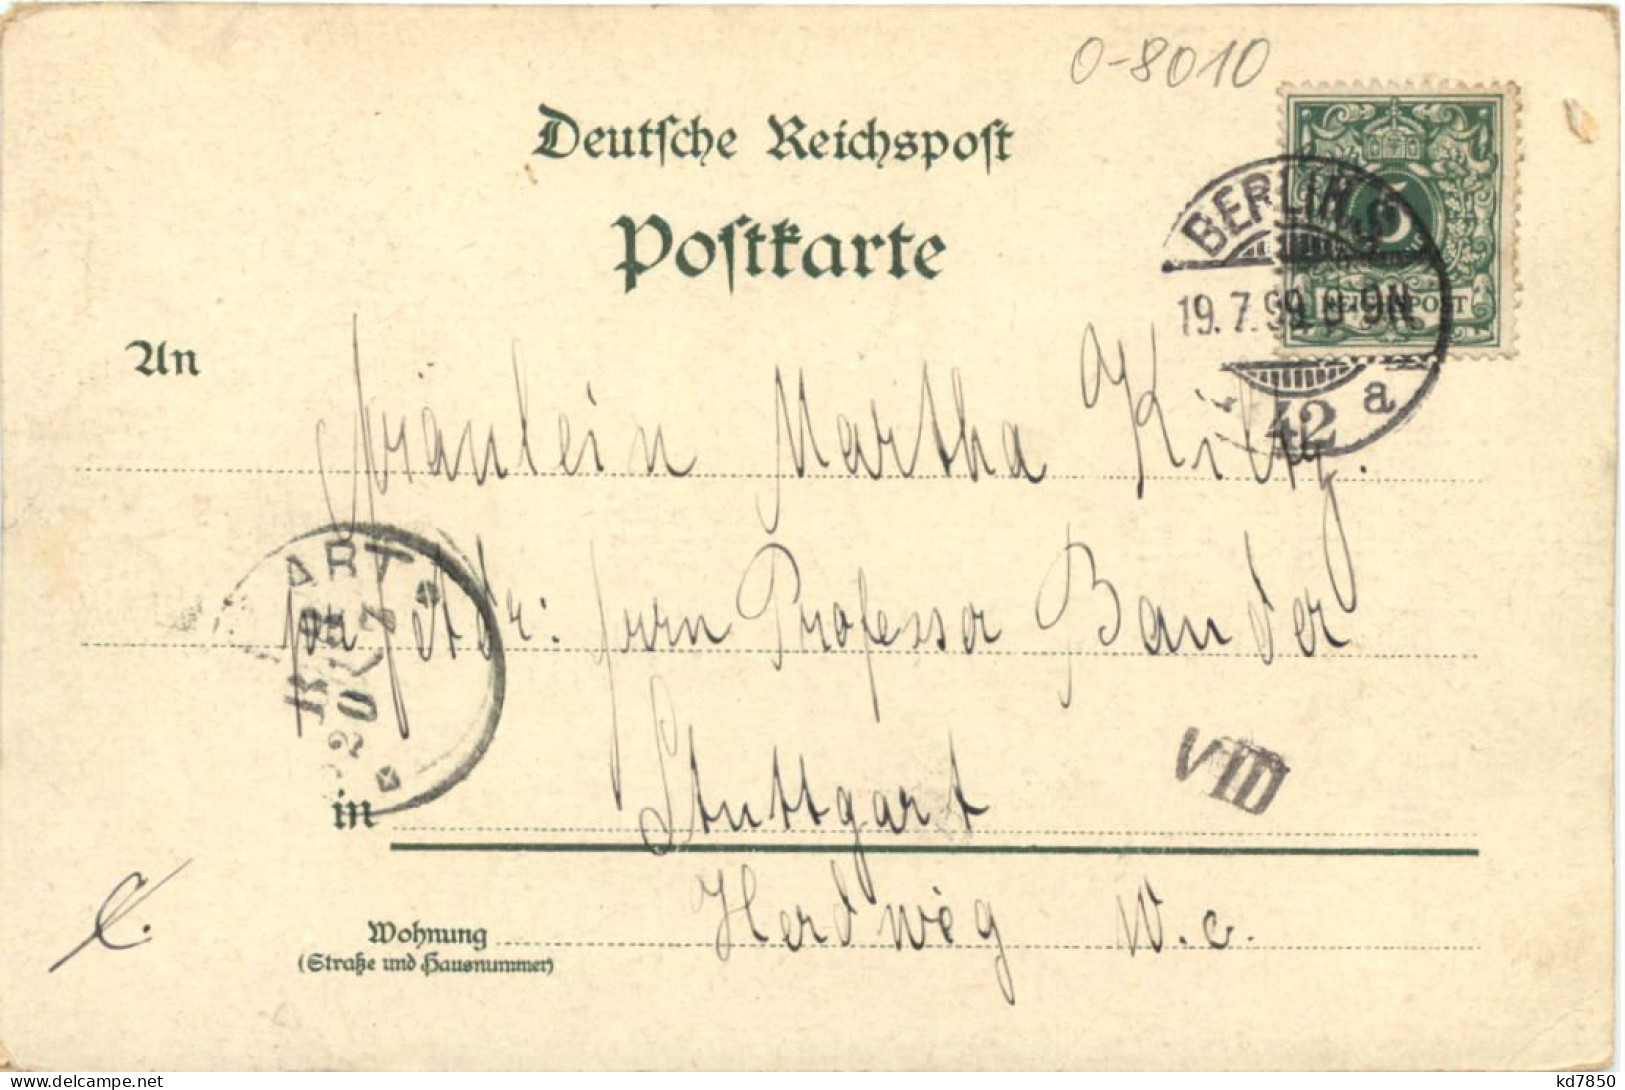 0-8010
Deutsche Reichspost
Postkarte
BERLIN. S
19.7.99. 8-9N.
42 a
REICHSPOST
5
An
Fräulein Martha
Adr: Herrn Professor Bander
ART
20 7
Stuttgart
VIII
in
Herdweg W.c.
Wohnung
(Straße und Hausnummer)
kd7850